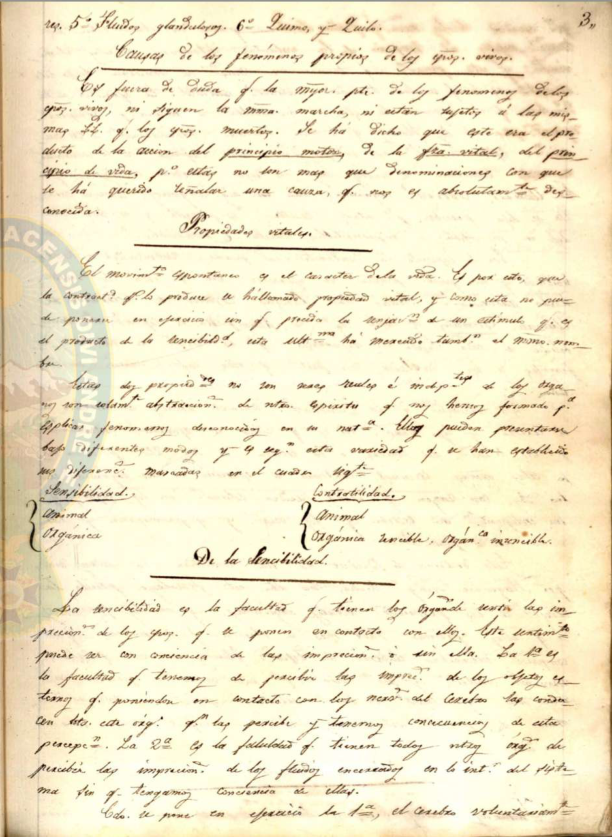 3,,
res. 5º Fluidos glandulosos. 6º Quimo, y Quilo.
Causas de los fenómenos propios de los cpos. vivos.
Es fuera de duda q. la mayor. pte. de los fenomenos de los
cpos. vivos, ni siguen la mma. marcha, ni están sujetos á las mis-
mas LL. q. los cpos. muertos. Se há dicho que este era el pro-
ducto de la accion del principio motor, de la fza. vital, del prin-
cipio de vida, pº. estas no son mas que denominaciones con que
se há querido señalar una cauza, q. nos es absolutamte. des-
conocida.
Propiedades vitales.
El movimto. espontaneo es el caracter de la vida. Es por esto, que
la contractd. q. lo produce se há llamado propiedad vital, y como esta no pue-
de ponerse en ejercicio con q. preceda la de un estimulo q. es
el producto de la sencibildd., esta há merecido tambn. el mmo. nom-
bre.
Estas dos propiedes. no son reales é indeptes. de los órga-
nos son solamte. abstraccions. de ntro. espiritu q. nos hemos formado pª.
esplicar fenomenos desconocidos en su natª. Ellas pueden presentarse
bajo diferentes modos y es segn. esta variedad q. se han establecido
sus diferencs. marcadas en el cuadro sigte.
Sensibilidad. Contratilidad.
Animal Animal
Organica Orgánica sencible, orgánca. insencible.
De la Sencibilidad.
La sencibilidad es la facultad q. tienen los órgs. de sentir las im-
precions. de los cpos. q. se ponen en contacto con ellos. Este sentimto.
puede ser con conciencia de las imprecions. ó sin ella. La 1ª es
la facultad q. tenemos de percibir las imprecs. de los objetos es-
ternos q. poniendose en contacto con los nervs. del cerebro las condu-
cen hta. este órgº. qn. las percibe y tenemos de esta
percepcn. La 2ª es la facultad q. tienen todos ntros. órgs. de
percibir las imprecions. de los fluidos encerrados en lo intr. del siste-
ma sin q. tengamos conciencia de ellas.
Cdo. se pone en ejercicio la 1ª, el cerebro voluntariamte.